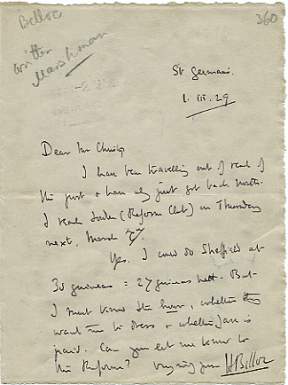 Belloc
360
written
St Germans.
1. III. 29
Dear Mr Christy
I have been travelling out of reach of
the post & have only just got back North.
I reach London (Reform Club) on Thursday
next, March 7th.
Yes. I could do Sheffield at
30 guineas = 27 guineas nett. But
I must know the hour, whether they
want me to dress & whether fare is
paid. Can you let me know to
the Reform?
H Belloc